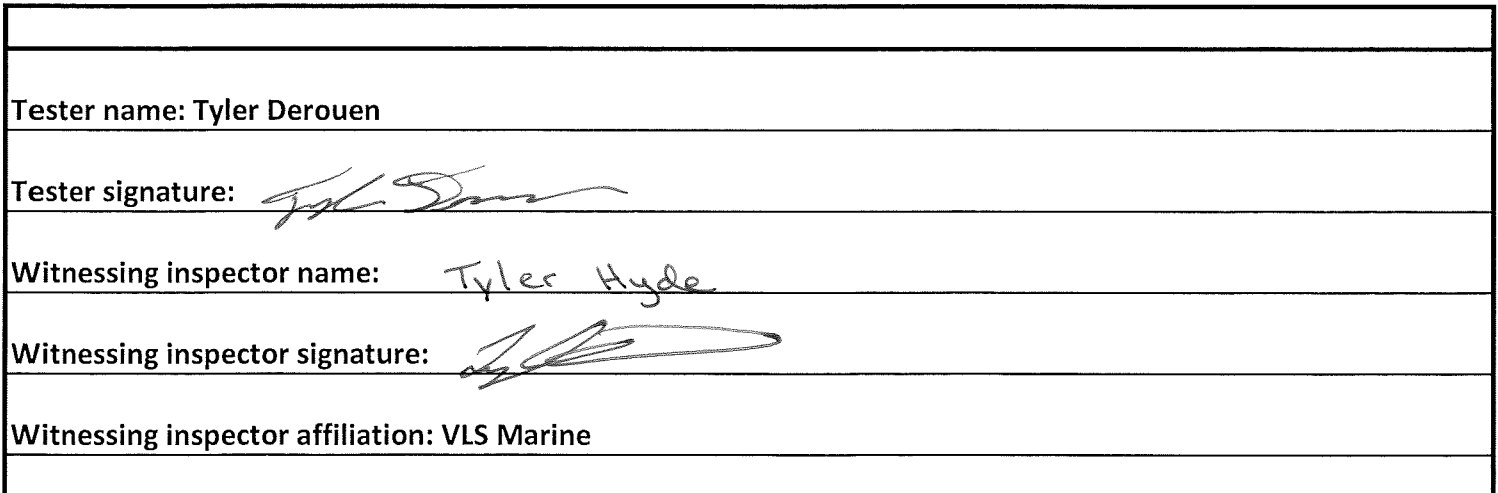 Tester name: Tyler Derouen
Tester signature:
Witnessing inspector name: Tyler Hyde
Witnessing inspector signature:
Witnessing inspector affiliation: VLS Marine